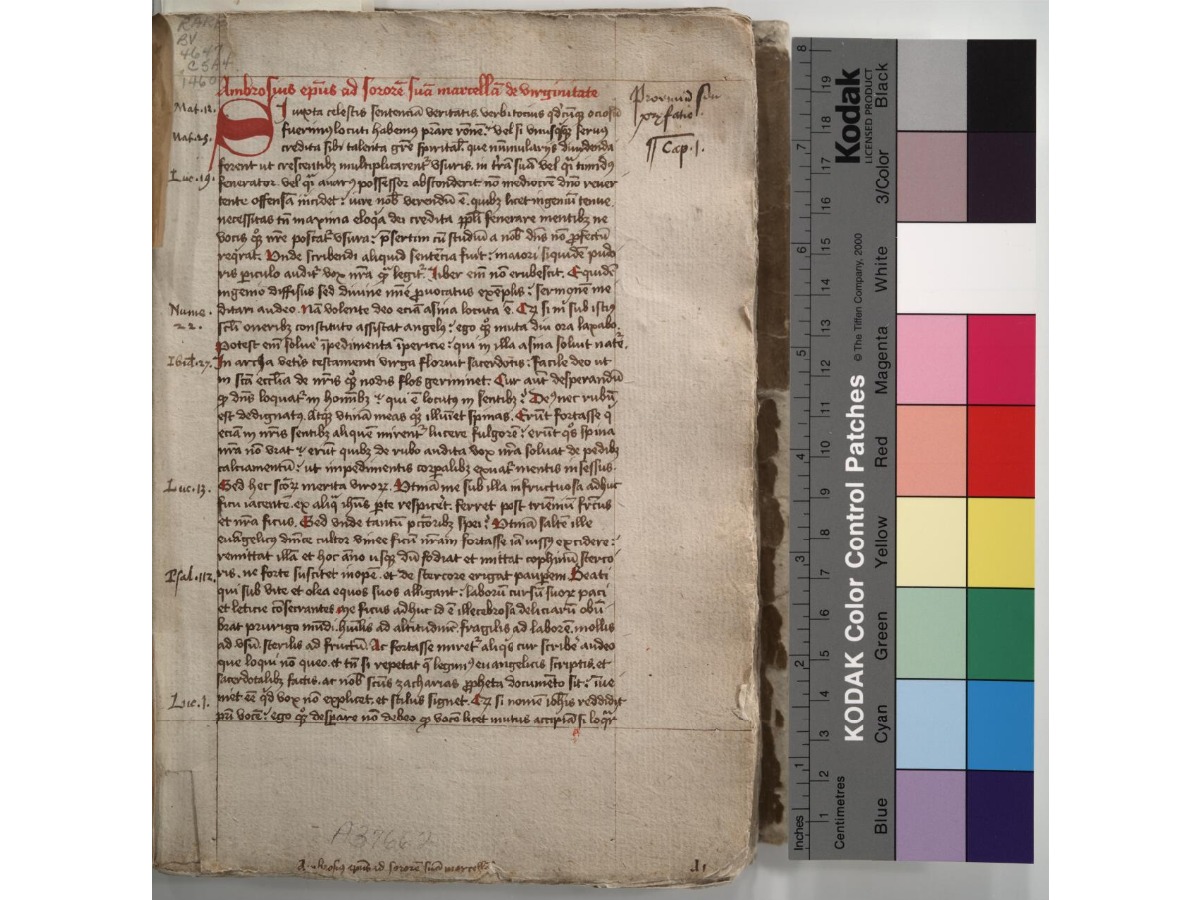 RARE
BV
4647
.C5A4
1460
Ambrosius ep̄us ad sororē suā marcellā de virginitate
Mat. 12.
Mat. 25.
Luc. 19.
Nume.
22.
Luc. 13.
Psal. 112.
Luc. 1.
¶ Cap. 1.
Si iuxta celestis sentenciā veritatis. verbi tocius qd'cūq; ociosū
fuerimus locuti habemus prāre rōnē. vel si vnusq'sq; seruus
credita sibi talenta grē spiritalē. que nūmularijs diuidenda
forent ut crescentibz multiplicarent' vsuris. in trā suā vel q'i timidus
fenerator. vel q'i auarus possessor absconderit nō mediocrē dn̄o reuer
tente offensā incidet: iure nob' verendū ē. quibz licet ingeniū tenue.
necessitas tn̄ maxima eloq'a dei credita pp̄li fenerare mentibz ne
vocis q'q; nr̄e poscat' vsura: p̄sertim cū studiū a nob' dn̄s nō ꝓfectū
req'rat. Vnde scribendi aliquid sentencia fuit: maiori siquidē pudo
ris piculo audit' vox nr̄a q' legit'. Liber em̄ nō erubescit. Equidē
ingenio diffisus sed diuine mīe ꝓuocatus exēplis: sermonē me
ditari audeo. Nā volente deo eciā asina locuta ē. Qz si m' sub istius
sc'li oneribz constituto assistat angelus: ego q'q; muta diu ora laxabo.
Potest em̄ solue' īpedimenta īpericie: qui in illa asina soluit nat'e.
In archa vet'is testamenti virga floruit sacerdotis: facile deo ut
in scā eccl'ia de nr̄is q'q; nodis flos germinet. Cur aut' desperandū
q' dn̄s loquat' in hom̄ibz: qui ē locutus in sentibz? Deus nec rubū
est dedignatus. Atq; vtinā meas q'q; illuīet spinas. Erūt fortasse q'
eciā in nr̄is sentibz aliquē mirent' lucere fulgorē: erūt q's spina
nr̄a nō vrat: erūt quibz de rubo audita vox nr̄a soluat de pedibz
calciamentū: ut impedimentis corp'alibz exuat' mentis ingressus.
Sed hec sc'orz merita virorz. Vtinā me sub illa infructuosa adhuc
ficu iacentē. ex aliq'a ih'us pte respicet'. ferret post trienniū fr'ctus
et nr̄a ficus. Sed vnde tantū pc'toribz spei? Vtinā saltē ille
euāgelicus dn̄ice cultor vinee ficū nr̄am fortasse iā iussus excidere:
remittat illā et hoc āno vsq; dū fodiat et mittat cophinū sterco
ris. ne forte suscitet inopē. et de stercore erigat paup'em. Beati
qui sub vite et olea equos suos alligant: laborū cursū suorz paci
et leticie cōsecrantes. me ficus adhuc id ē illecebrosa deliciarū obū
brat prurigo mūdi. humilis ad altitudinē. fragilis ad laborē. mollis
ad vsū. sterilis ad fructū. Ac fortasse miret' aliq's cur scribe' audeo
que loqui nō queo. et tn̄ si repetat' q' legimus euangelicis scriptis. et
sacerdotalibz factis. ac nob' scūs zacharias ꝓpheta documēto sit: īue
niet eē q'd vox nō explicet. et stilus signet. Qz si nomē ioh'is reddidit
pr̄i vocē: ego q'q; despare nō debeo q' vocē licet mutus accipiā si loq'r
A37662
Ambrosius ep̄us ad sororē suā marcellā
A1
KODAK Color Control Patches © The Tiffen Company, 2000
Kodak
LICENSED PRODUCT
Inches
Centimetres
Blue
Cyan
Green
Yellow
Red
Magenta
White
3/Color
Black